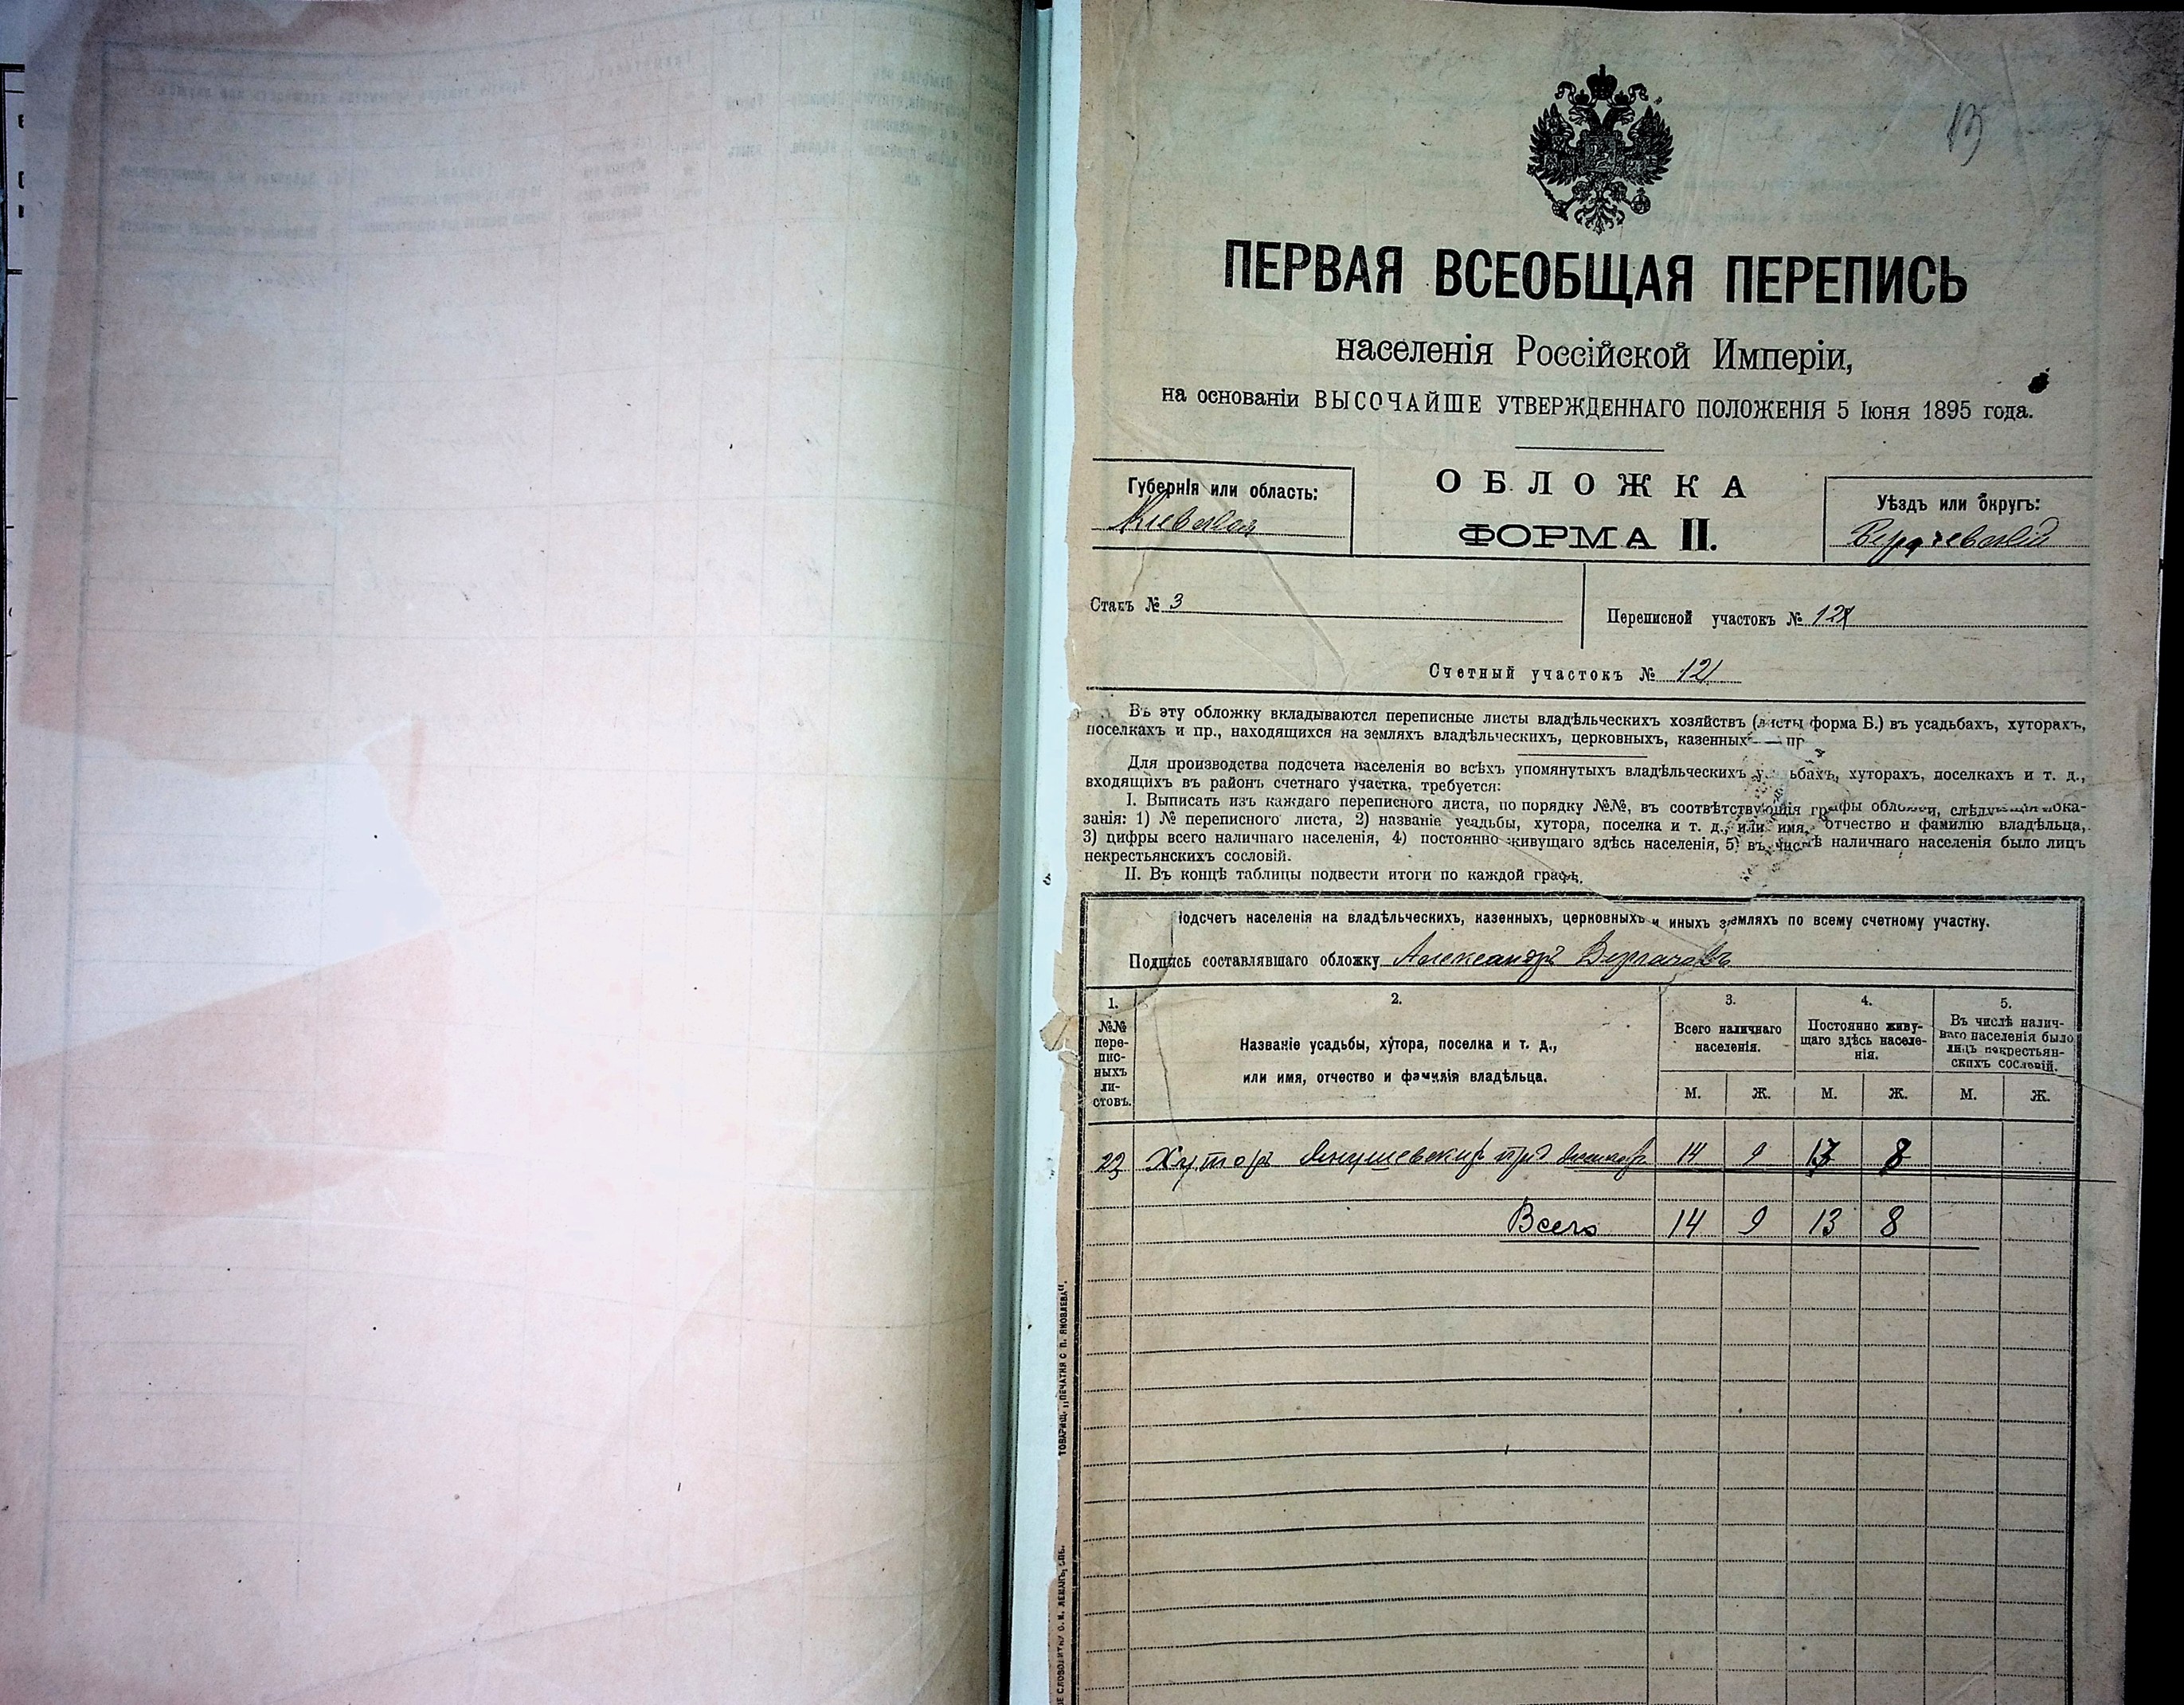 ПЕРВАЯ ВСЕОБЩАЯ ПЕРЕПИСЬ
населенія Россійской Имперіи,
на основаніи ВЫСОЧАЙШЕ УТВЕРЖДЕННАГО ПОЛОЖЕНІЯ 5 Іюня 1895 года.
Губернія или область:
Кіевская
ОБЛОЖКА
ФОРМА II.
Уѣздъ или округъ:
Бердичевскій
Станъ № 3
Переписной участокъ № 12
Счетный участокъ № 121
Въ эту обложку вкладываются переписные листы владѣльческихъ хозяйствъ (листы форма Б.) въ усадьбахъ, хуторахъ,
поселкахъ и пр., находящихся на земляхъ владѣльческихъ, церковныхъ, казенныхъ пр
Для производства подсчета населенія во всѣхъ упомянутыхъ владѣльческихъ усадьбахъ, хуторахъ, поселкахъ и т. д.,
входящихъ въ районъ счетнаго участка, требуется:
I. Выписать изъ каждаго переписного листа, по порядку №№, въ соотвѣтствующія графы обложки, слѣдующія пока-
занія: 1) № переписного листа, 2) названіе усадьбы, хутора, поселка и т. д., или имя, отчество и фамилію владѣльца,
3) цифры всего наличнаго населенія, 4) постоянно живущаго здѣсь населенія, 5) въ числѣ наличнаго населенія было лицъ
некрестьянскихъ сословій.
II. Въ концѣ таблицы подвести итоги по каждой графѣ.
Подсчетъ населенія на владѣльческихъ, казенныхъ, церковныхъ и иныхъ земляхъ по всему счетному участку.
Подпись составлявшаго обложку Александръ
1. 2. 3. 4. 5.
№№ пере-пис-ныхъ ли-стовъ.
Названіе усадьбы, хутора, поселка и т. д.,
или имя, отчество и фамилія владѣльца.
Всего наличнаго населенія.
Постоянно живу-щаго здѣсь населе-нія.
Въ числѣ налич-наго населенія было лицъ некрестьян-скихъ сословій.
М. Ж. М. Ж. М. Ж.
22 Хуторъ 14 9 13 8
Всего 14 9 13 8
ТОВАРИЩ. „ПЕЧАТНЯ С. П. ЯКОВЛЕВА“.